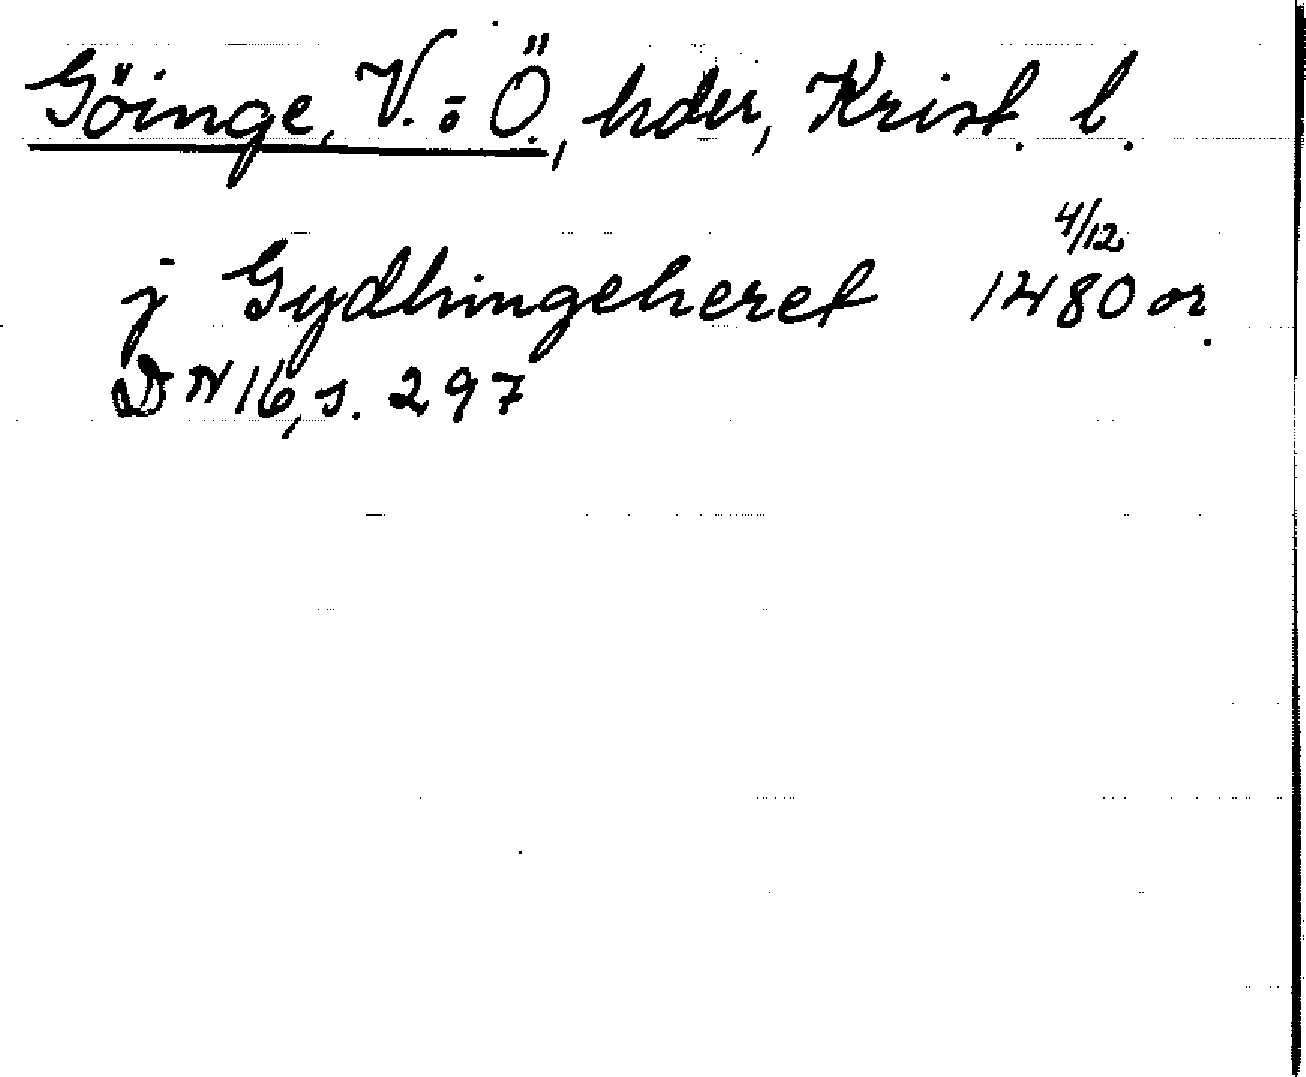 Göinge, V. o Ö., hder, Krist. l.
j Gydhingeheret 4/12 1480 or.
DN 16, s. 297